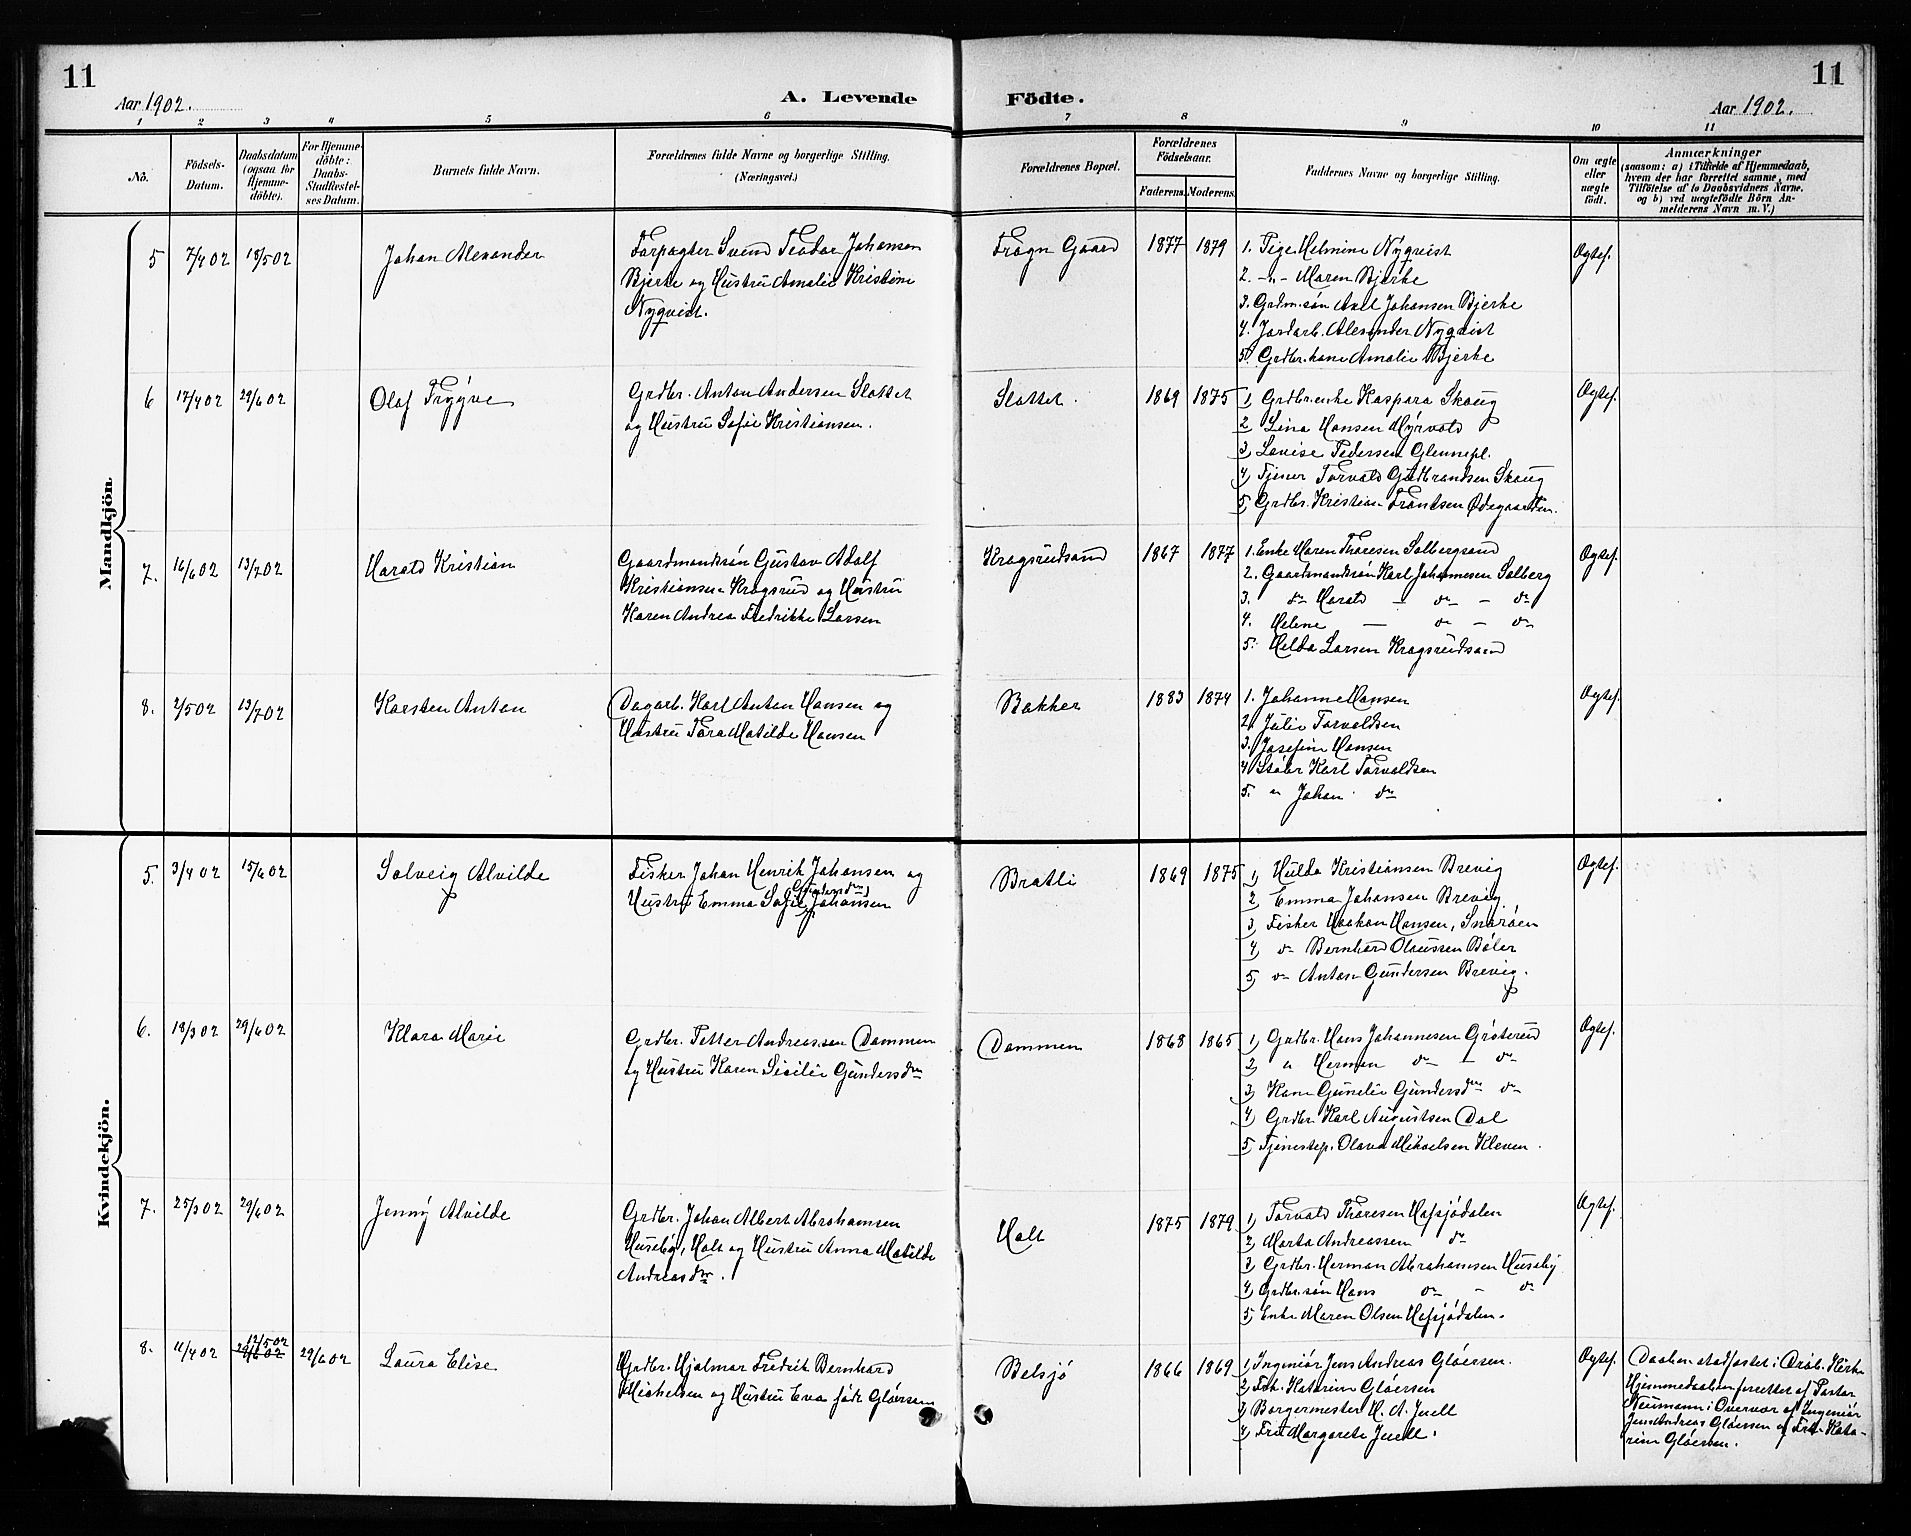 11
Aar 1902.
A. Levende Födte.
Aar 1902.
11
1 2 3 4 5 6 7 8 9 10 11
No.
Födsels-Datum.
Daabsdatum (ogsaa for Hjemme-döbte).
For Hjemme-döbte: Daabs-Stadfæstel-ses Datum.
Barnets fulde Navn.
Forældrenes fulde Navne og borgerlige Stilling.
(Næringsvei.)
Forældrenes Bopæl.
Forældrenes Födselsaar.
Faderens. Moderens.
Faddernes Navne og borgerlige Stilling.
Om ægte eller uægte födt.
Anmærkninger
(saasom: a) i Tilfælde af Hjemmedaab,
hvem der har forrettet samme, med
Tilföielse af to Daabsvidners Navne.
og b) ved uægtefödte Börn An-
melderens Navn m. V.)
Mandkjön.
5 7/4 02 18/5 02 Johan Alexander
Forpagter Svend Teodor Johansen
Bjerke og Hustru Amalie Kristine
Nyqvist.
Frogn Gaard 1877 1879
1. Pige Helmine Nyqvist
2. -"- Maren Bjerke
3. Grdm.søn Axel Johansen Bjerke
4. Jordarb. Alexander Nyqvist
5. Grdbr.kone Amalie Bjerke
Ægtef.
6 17/4 02 29/6 02 Olaf Trygve
Grdbr. Anton Andersen Slottet
og Hustru Sofie Kristiansen.
Slottet. 1869 1875
1, Grdbr.enke Kaspara Skoug
2, Lina Hansen Myrvold
3, Lovise Pedersen Glennepl.
4, Tjener Torvald Gudbrandsen Skoug
5, Grdbr. Kristian Frantsen Ødegaarden.
Ægtef.
7. 16/6 02 13/7 02 Harald Kristian
Gaardmandssøn Gustav Adolf
Kristiansen Krogsrud og Hustru
Karen Andrea Fredrikke Larsen
Krogsrudsand 1867 1877
1. Enke Maren Thoresen Solbergsand
2. Gaardmandssøn Karl Johannesen Solberg
3. do Harald — do — do
4. Helene — do — do
5. Helda Larsen Krogsrudsand
Ægtef.
8. 2/5 02 13/7 02 Karsten Anton
Dagarb. Karl Anton Hansen og
Hustru Tora Matilde Hansen
Bakker 1883 1874
1. Johanne Hansen
2. Julie Torvaldsen
3. Josefine Hansen
4 Støber Karl Torvaldsen
5. " Johan do
Ægtef.
Kvindekjön.
5. 3/4 02 15/6 02 Solveig Alvilde
Fisker Johan Henrik Johansen og
Hustru Emma Sofie Johansen
(Gundersdtr)
Bratli 1869 1875
1, Hulda Kristiansen Brevig
2, Emma Johansen Brevig
3, Fisker Haakon Hansen, Snarøen
4, do Bernhard Olaussen Bøler
5, do Anton Gundersen Brevig.
Ægtef.
6. 18/3 02 29/6 02 Klara Marie
Grdbr. Petter Andreassen Dammen
og Hustru Karen Sisilie Gundersdtr
Dammen 1868 1865
1, Grdbr. Hans Johannesen Grøterud
2, " Herman do — do
3, Kone Gunelie Gundersdtr do
4, Grdbr. Karl Augustsen Dal
5, Tjenestep. Olava Mikaelsen Kleven.
Ægtef.
7. 25/3 02 29/6 02 Jenny Alvilde
Grdbr. Johan Albert Abrahamsen
Huseby, Holt og Hustru Anna Matilde
Andreasdtr.
Holt 1875 1879
1, Torvald Thoresen Hafsjødalen
2, Marta Andreassen do
3, Grdbr. Herman Abrahamsen Huseby
4, Grdbr.søn Hans do — do
5, Enke Maren Olsen Hafsjødalen.
Ægtef.
8. 11/4 02 12/5 02 29/6 02 29/6 02 Laura Elise
Grdbr. Hjalmar Fredrik Bernhard
Michelsen og Hustru Eva født Gløersen
Belsjø 1866 1869
1, Ingeniør Jens Andreas Gløersen.
2, Frk. Katarine Gløersen
3, Borgermester H. A. Juell
4, Fru Margarete Juell.
Ægtef.
Daaben stadfæstet i Drøb. Kirke
Hjemmedaaben forrettet af Pastor
Neumann i Overvær af Ingeniør
Jens Andreas Gløersen og Frk. Kata-
rine Gløersen.